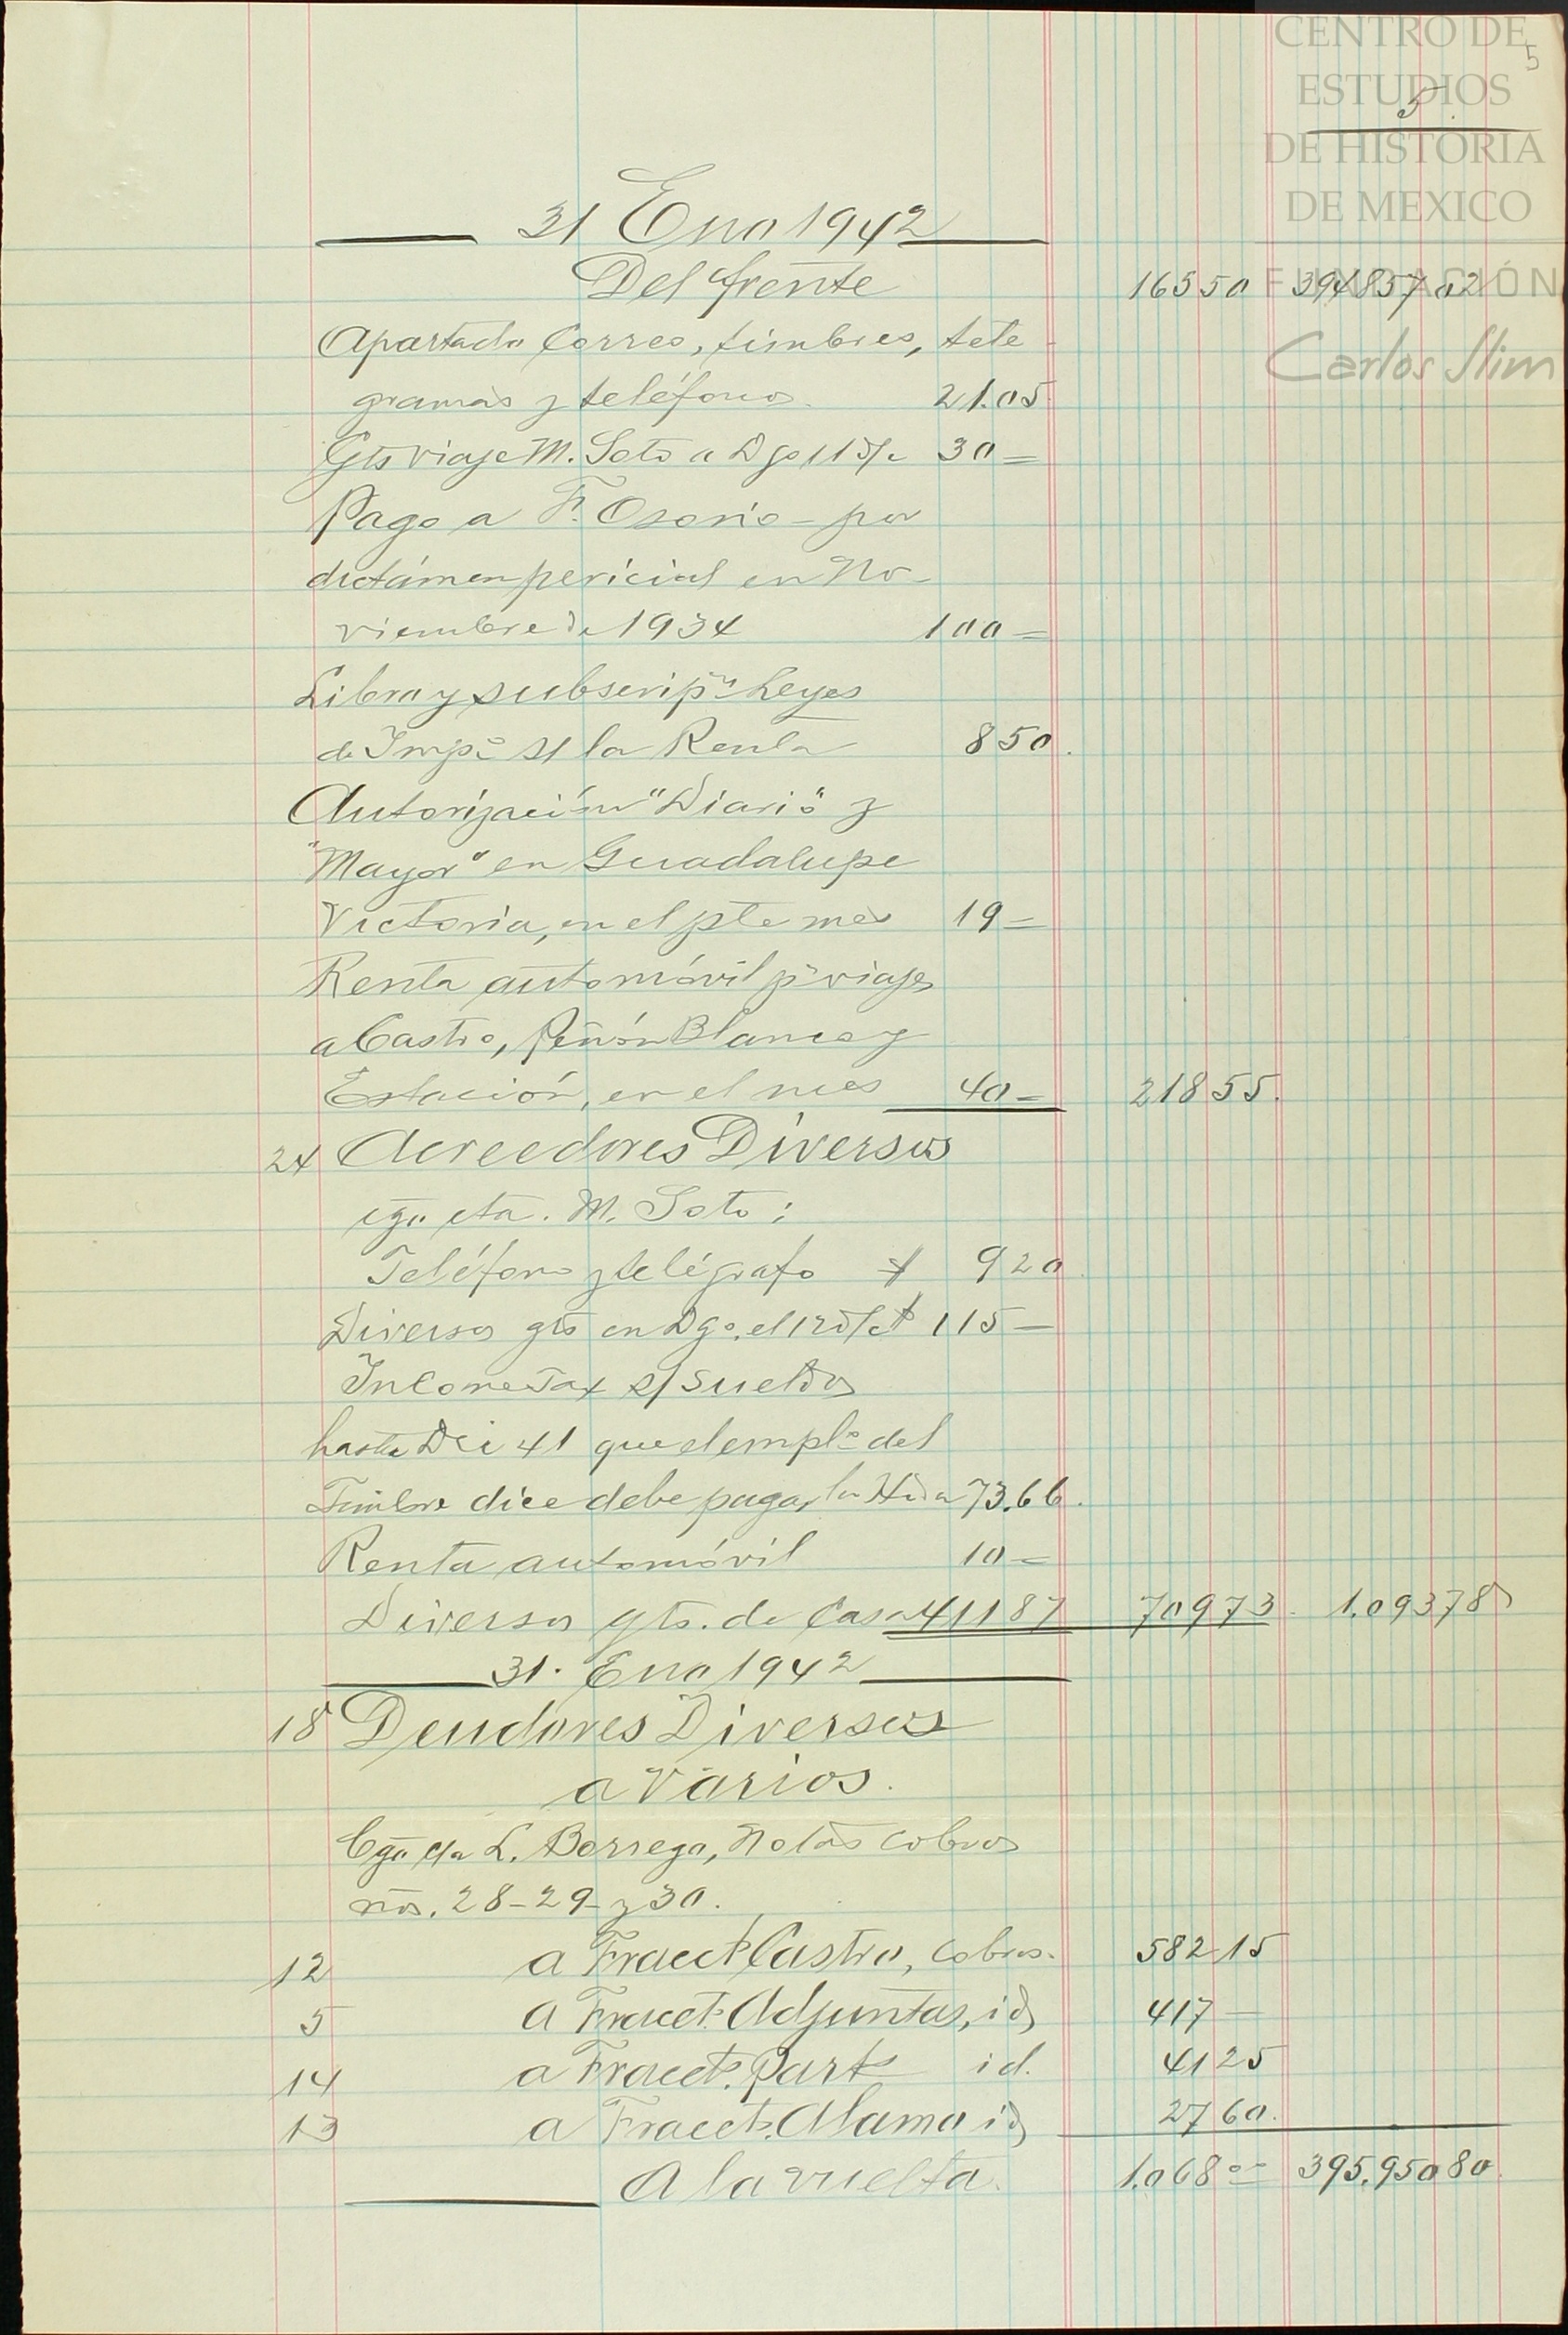 CENTRO DE
ESTUDIOS
DE HISTORIA
DE MEXICO
FUNDACIÓN
Carlos Slim
5
5
31 Eno 1942
Del frente 165 50 394857 02
Apartado Correo, timbres, tele-
gramas y teléfonos. 21.05
Gts viaje M. Soto a Dgo 30=
Pago a F. Osorio - por
dictámen pericial en No-
viembre de 1934 100=
Libro y subscripn Leyes
de Impto s/ la Renta 8 50.
Autorización "Diario" y
"Mayor" en Guadalupe
Victoria, en el pte mes 19=
Renta automóvil pa viajes
a Castro, Peñón Blanco y
Estación, en el mes 40= 218 55.
24 Acreedores Diversos
cgo cta. M. Soto:
Teléfono y telégrafo $ 9 20
Diversos gts en Dgo. el $ 115—
Income Tax s/ sueldos
hasta Dic 41 que el emplo del
Timbre dice debe pagar la Hda 73.66.
Renta automóvil 10=
Diversos gts. de Casa 411 87 709 73. 1.093 78
31. Eno 1942
18 Deudores Diversos
a Varios.
Cgo cta L. Borrego, Notas cobros
nos. 28-29- y 30.
12 a Fracct. Castro, cobros. 582 15
5 a Fracct. Adjuntas, id 417 —
14 a Fracct. Part. id. 41 25
13 a Fracct. Alamo id 27 60.
A la vuelta. 1.068 00 395.950 80.